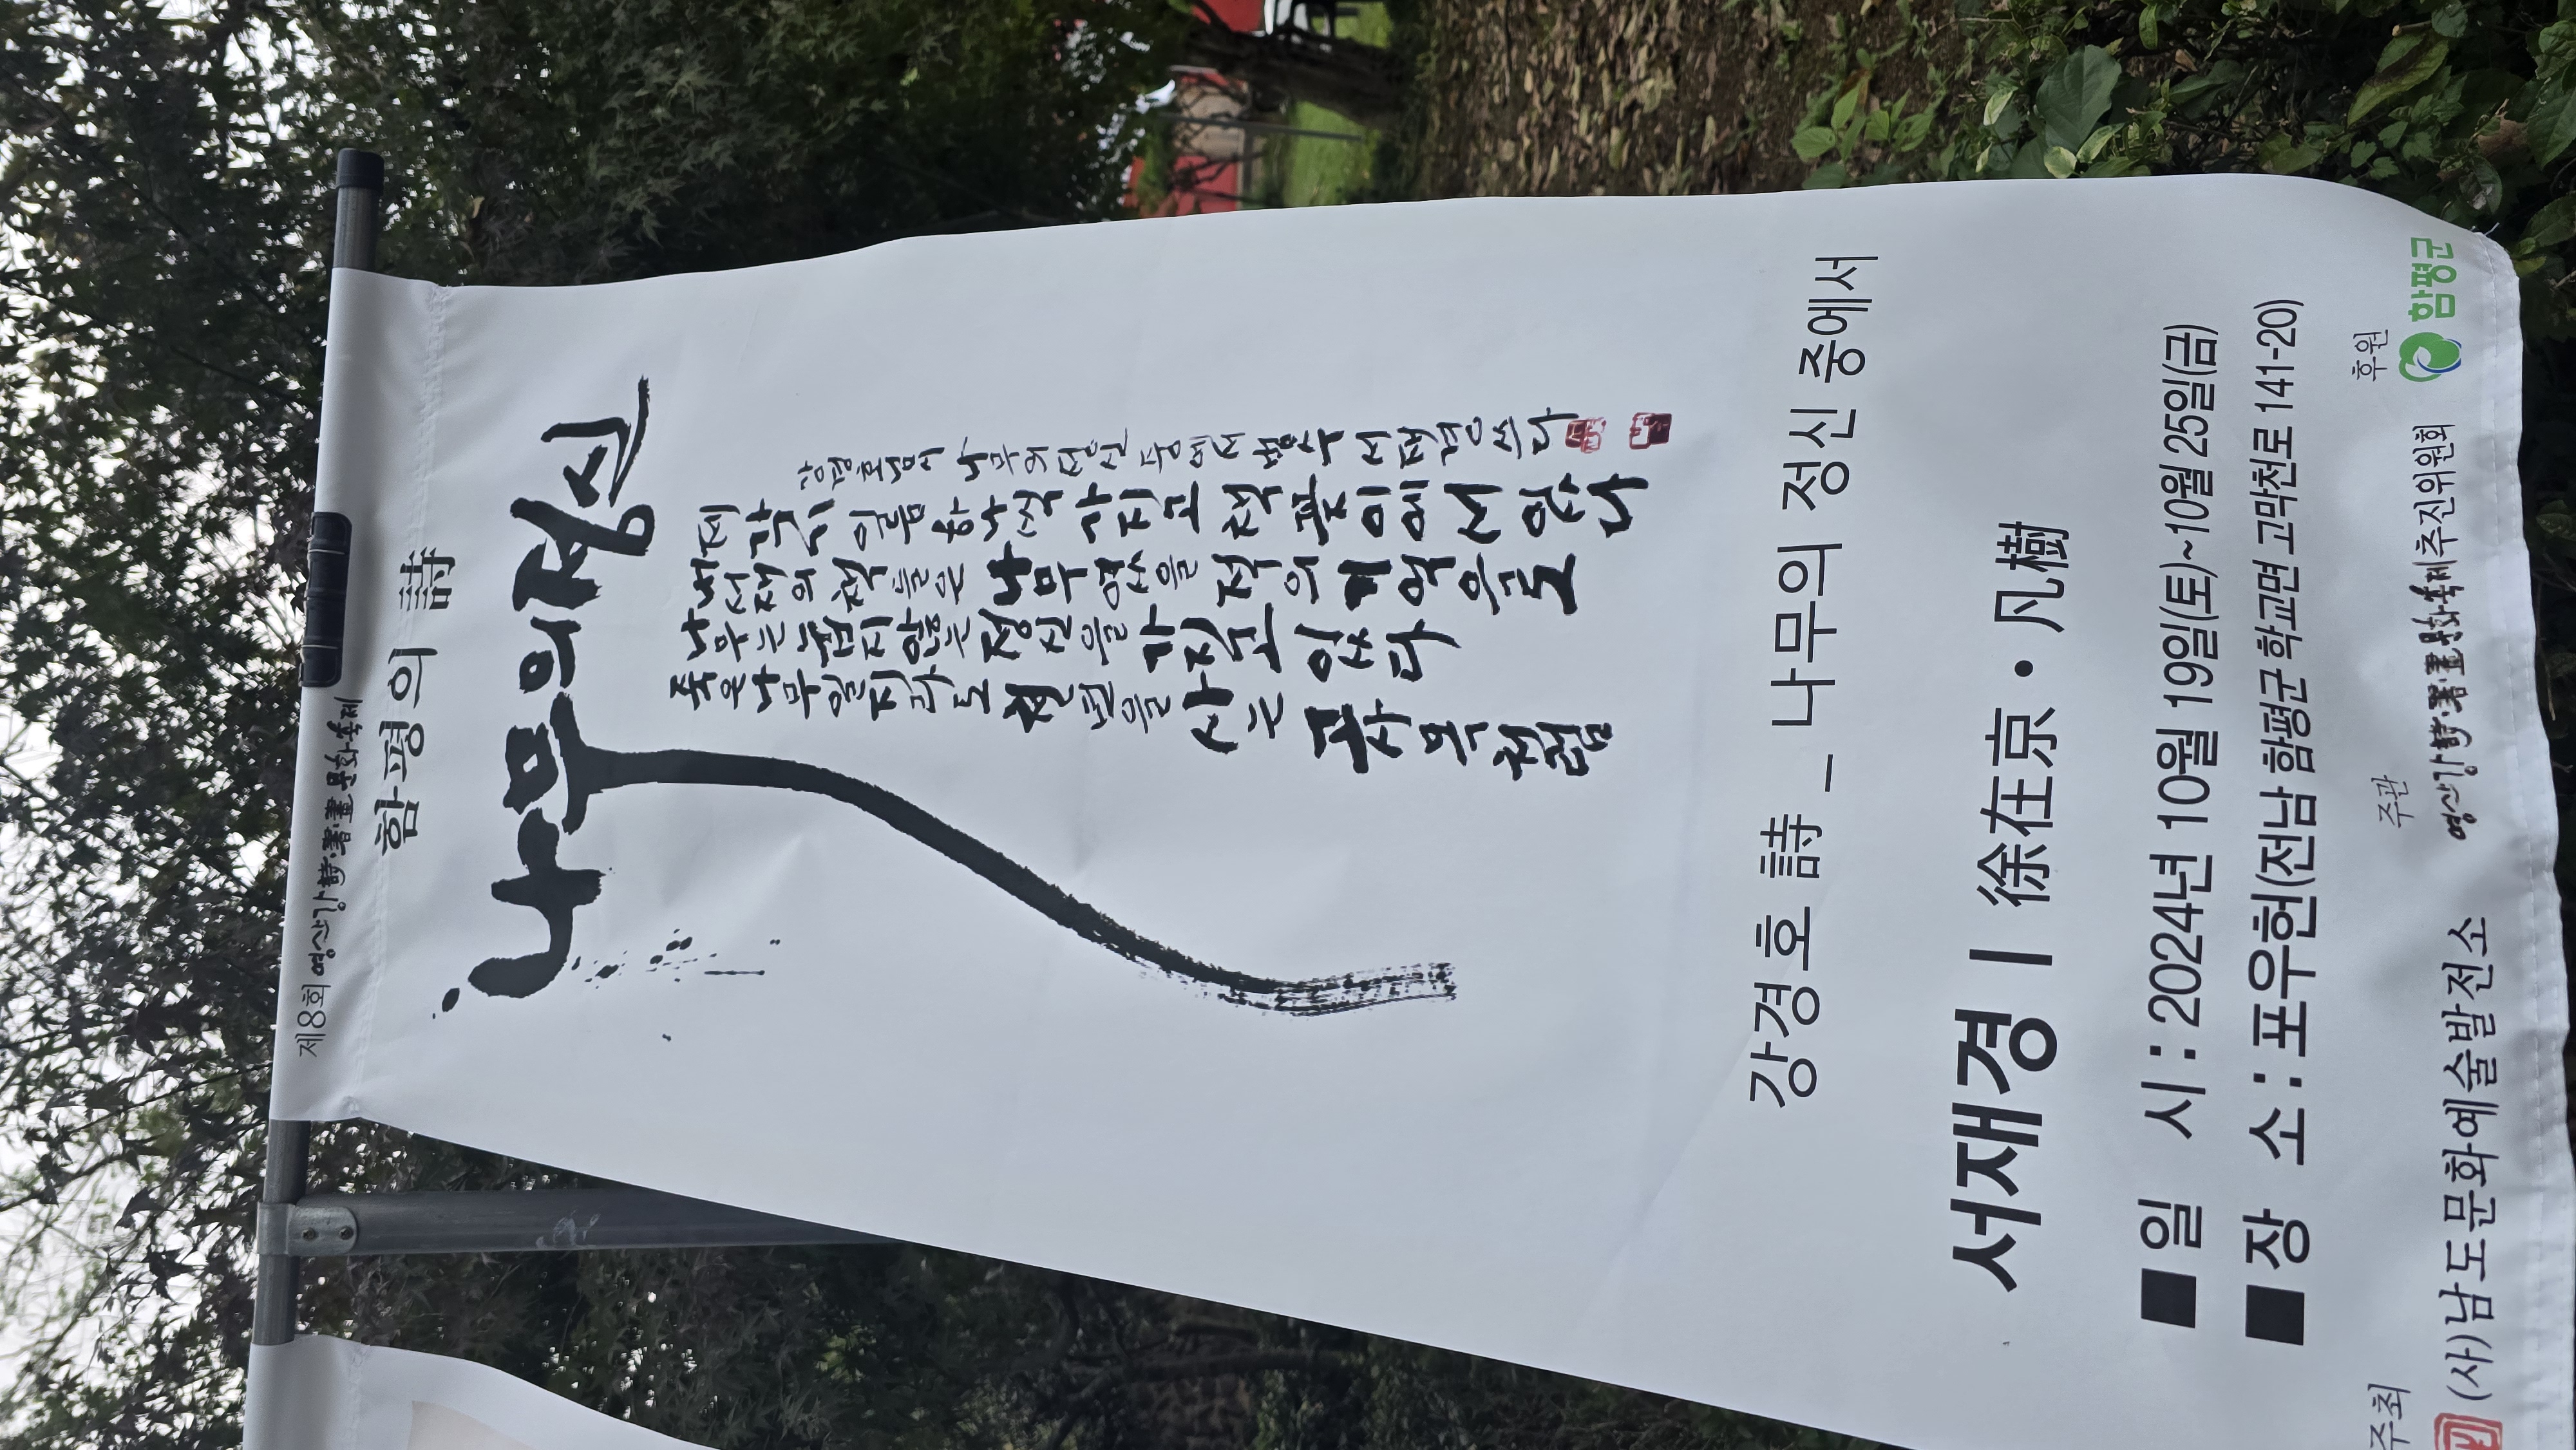 제8회 영산강 詩·書·畫 문화축제
함평의 詩
나무의 정신
죽은 나무일지라도 천년을 사는 고사목처럼
나무는 굽지 않는 정신을 가지고 있다
내 서재의 책들은 나무였을 적의 기억으로
제각기 이름 하나씩 가지고 책꽂이에 서 있나
강경호님의 나무의 정신 중에서 범수 서재경 쓰다
강경호 詩 _ 나무의 정신 중에서
서재경 | 徐在京 • 凡樹
■ 일 시 : 2024년 10월 19일(토)~10월 25일(금)
■ 장 소 : 포우헌(전남 함평군 학교면 고막천로 141-20)
주최 (사)남도문화예술발전소
주관 영산강 詩·書·畫 문화축제추진위원회
후원 함평군